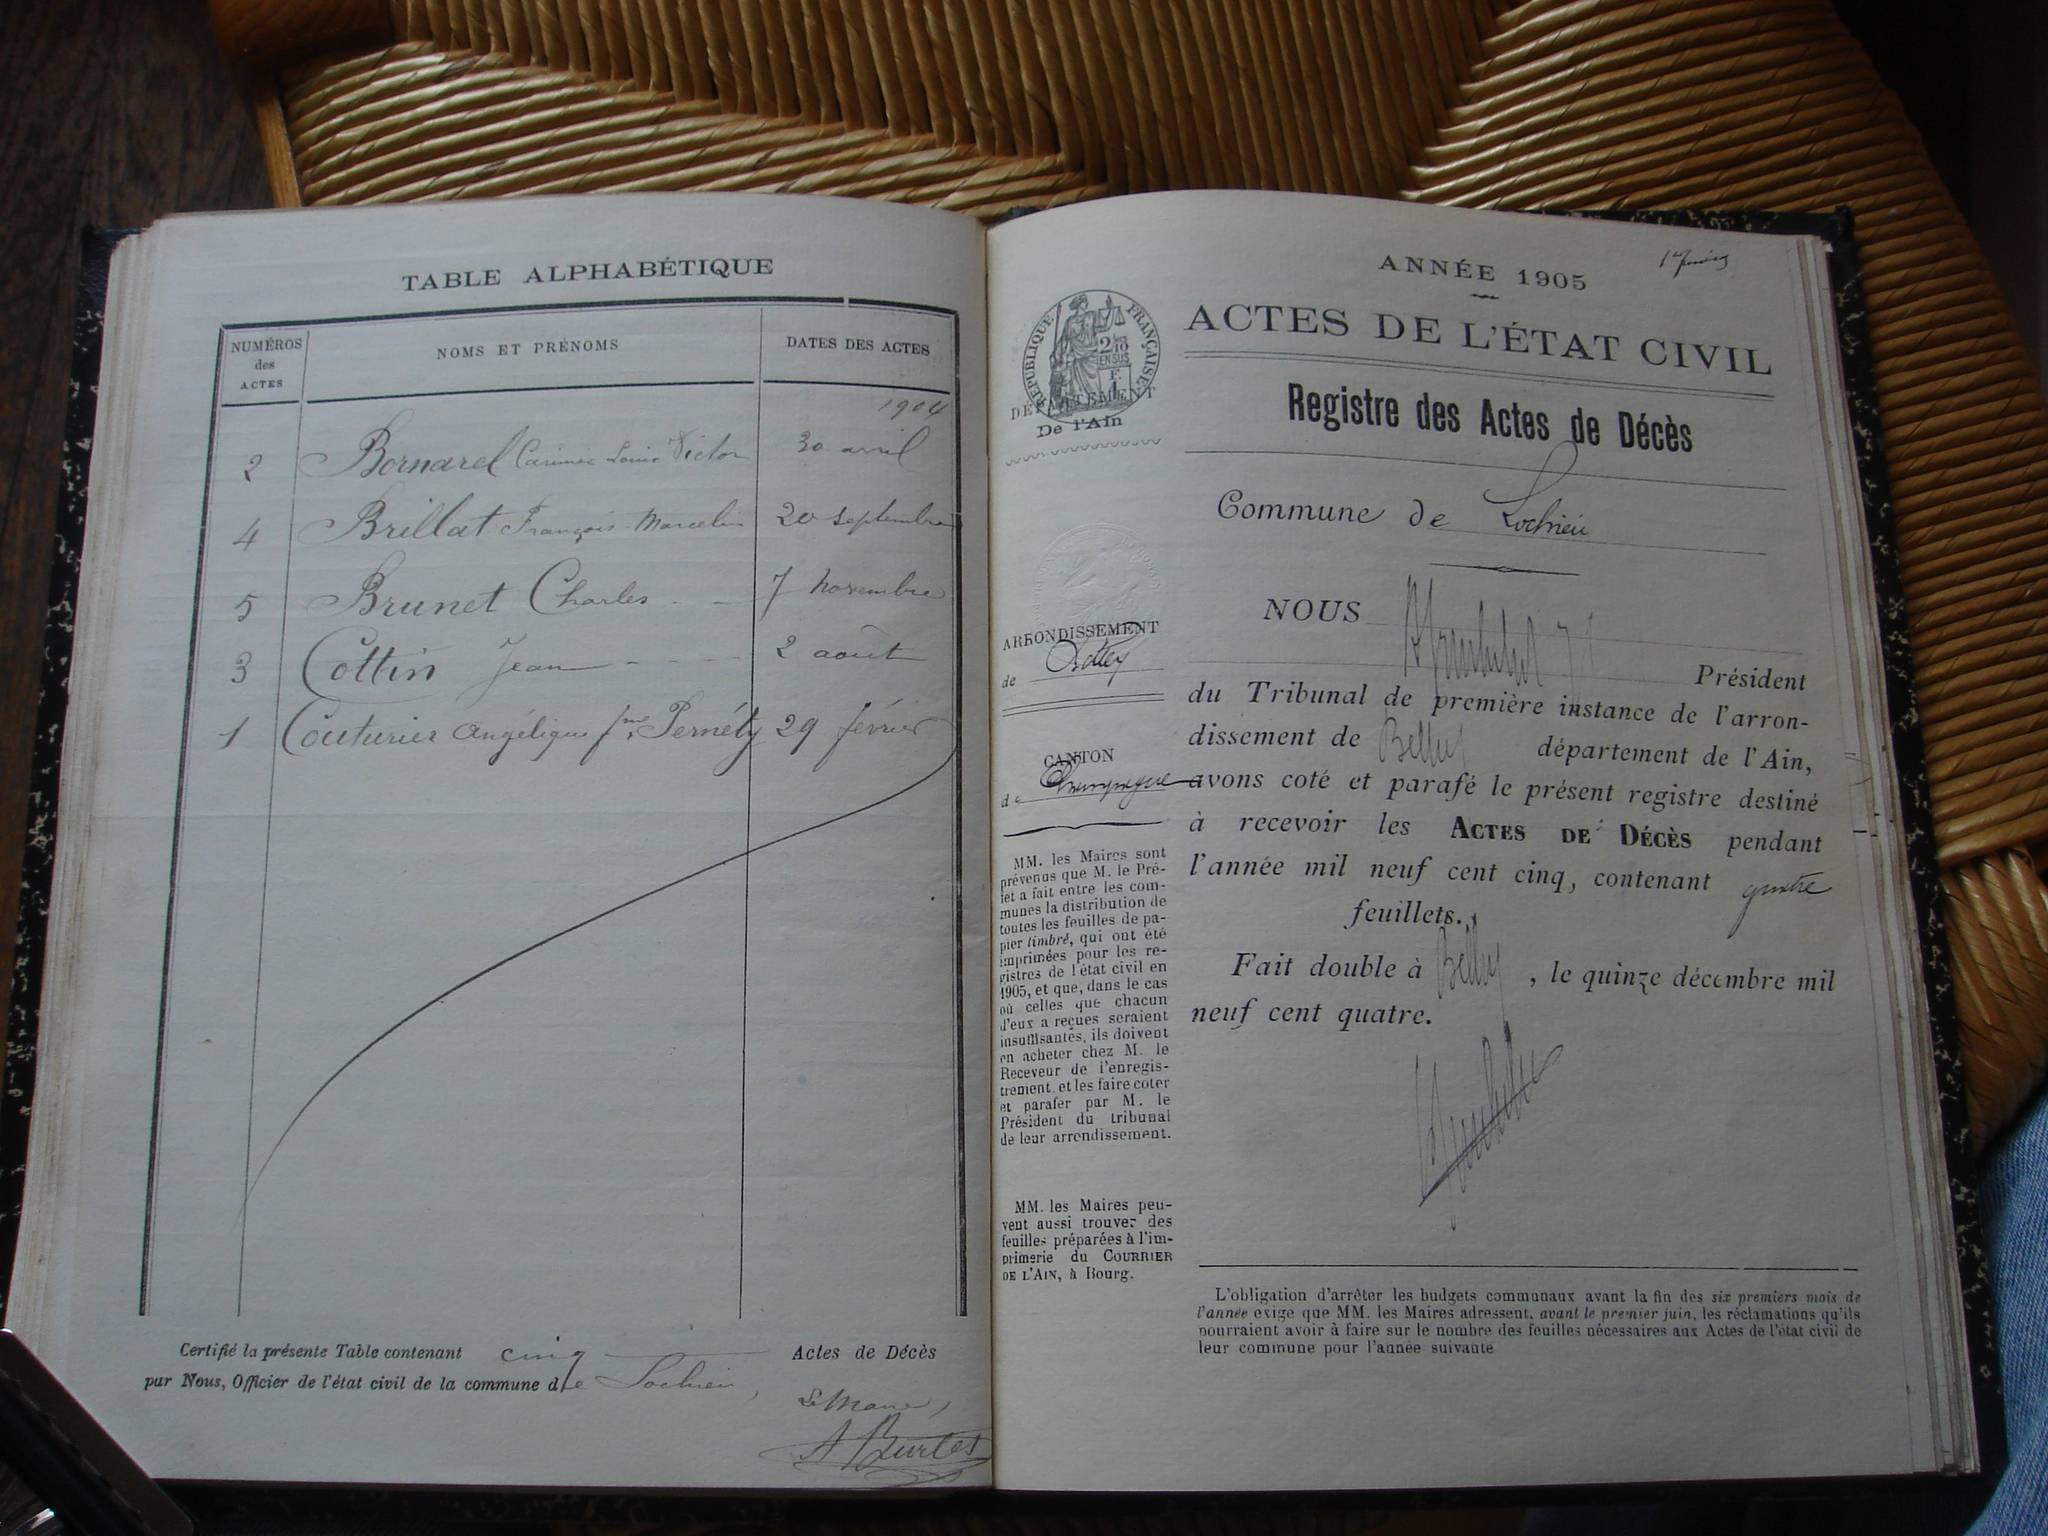 TABLE ALPHABÉTIQUE
NUMÉROS
des
ACTES
NOMS ET PRÉNOMS
DATES DES ACTES
1904
2 Bornarel Casimir Louis Victor 30 avril
4 Brillat François Marcelin 20 septembre
5 Brunet Charles 7 novembre
3 Cottin Jean 2 août
1 Couturier Angélique fme Pernéty 29 février
Certifié la présente Table contenant cinq Actes de Décès
par Nous, Officier de l'état civil de la commune de Lochieu,
Le Maire,
A Burtet
ANNÉE 1905
ACTES DE L'ÉTAT CIVIL
RÉPUBLIQUE FRANÇAISE
2/10 EN SUS
DÉPARTEMENT
De l'Ain
Registre des Actes de Décès
Commune de Lochieu
ARRONDISSEMENT
de Belley
CANTON
de Champagne
MM. les Maires sont
prévenus que M. le Pré-
fet a fait entre les com-
munes la distribution de
toutes les feuilles de pa-
pier timbré, qui ont été
imprimées pour les re-
gistres de l'état civil en
1905, et que, dans le cas
où celles que chacun
d'eux a reçues seraient
insuffisantes, ils doivent
en acheter chez M. le
Receveur de l'enregis-
trement, et les faire coter
et parafer par M. le
Président du tribunal
de leur arrondissement.
MM. les Maires peu-
vent aussi trouver des
feuilles préparées à l'im-
primerie du COURRIER
DE L'AIN, à Bourg.
NOUS
Président
du Tribunal de première instance de l'arron-
dissement de Belley département de l'Ain,
avons coté et parafé le présent registre destiné
à recevoir les ACTES DE DÉCÈS pendant
l'année mil neuf cent cinq, contenant quatre
feuillets.
Fait double à Belley, le quinze décembre mil
neuf cent quatre.
L'obligation d'arrêter les budgets communaux avant la fin des six premiers mois de
l'année exige que MM. les Maires adressent, avant le premier juin, les réclamations qu'ils
pourraient avoir à faire sur le nombre des feuilles nécessaires aux Actes de l'état civil de
leur commune pour l'année suivante